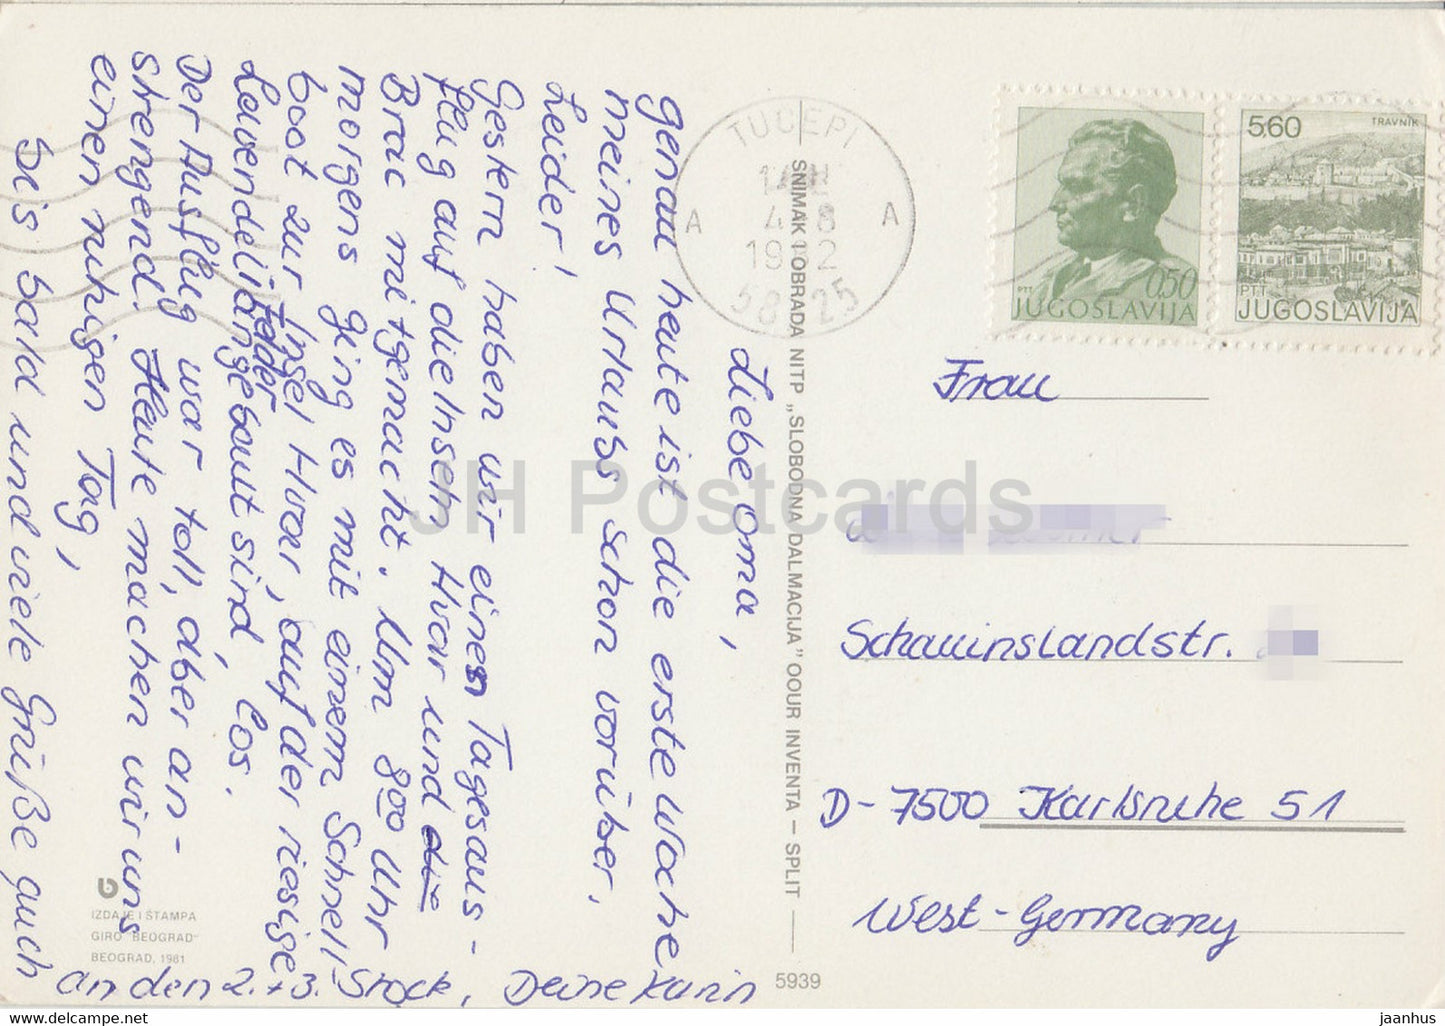 Liebe Oma,
genau heute ist die erste Woche
meines Urlaubs schon vorüber.
Leider!
Gestern haben wir einen Tagesaus-
flug auf die Inseln Hvar und die
Brac mitgemacht. Um 8 00 Uhr
morgens ging es mit einem Schnell
boot zur Insel Hvar, auf der riesige
Lavendelfelder angebaut sind, los.
Der Ausflug war toll, aber an-
strengend. Heute machen wir uns
einen ruhigen Tag,
bis bald und viele Grüße auch
an den 2. + 3. Stock, Deine Karin
TUCEPI
14 H
4 8
19 2
58 25
A A
JUGOSLAVIJA
0,50
PTT
5,60
TRAVNIK
PTT
JUGOSLAVIJA
SNIMAK I OBRADA NITP „SLOBODNA DALMACIJA” OOUR INVENTA – SPLIT
Frau
Schauinslandstr.
D-7500 Karlsruhe 51
West-Germany
IZDAJE I ŠTAMPA
GIRO "BEOGRAD"
BEOGRAD, 1981
5939
JH Postcards
www.delcampe.net
jaanhus